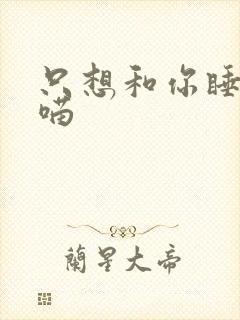 只想和你睡
喵
蘭星大帝